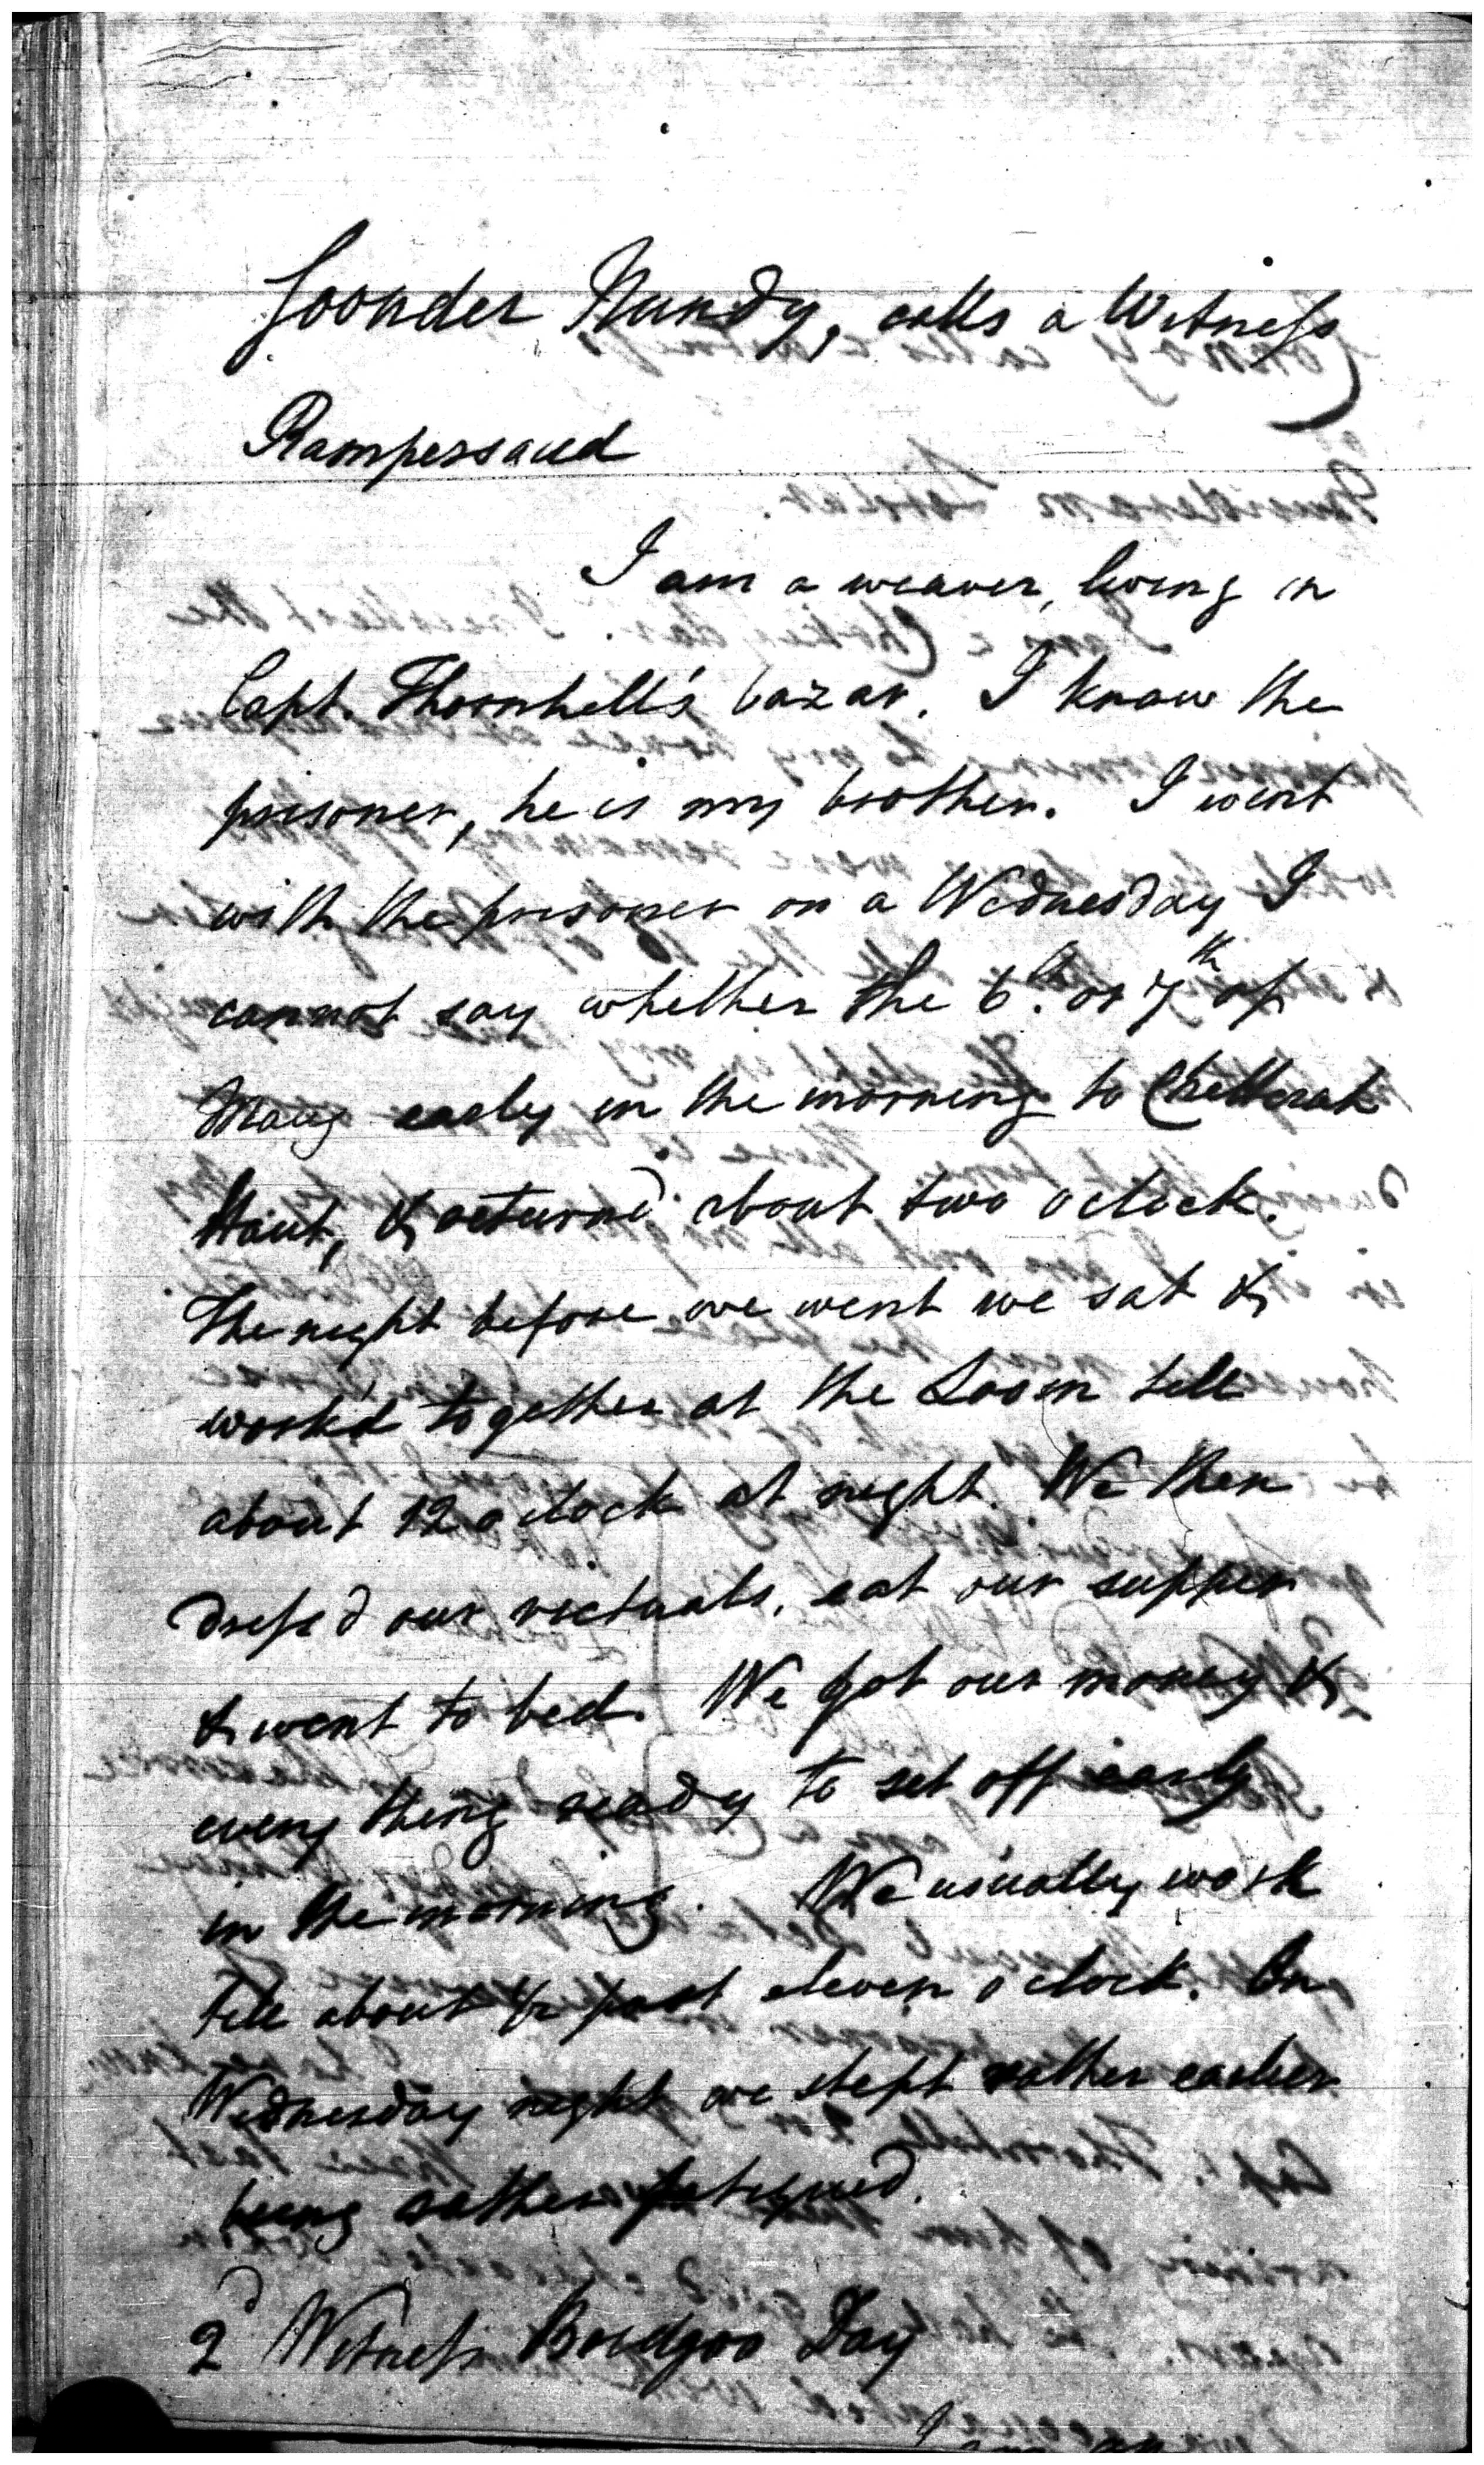 Soonder Nundy, calls a Witness
Rampersaud
I am a weaver, living in
Capt. Thornhill's bazar. I know the
prisoner, he is my brother. I went
with the prisoner on a Wednesday I
cannot say whether the 6th. or 7th of
Maug early in the morning to
Haut, & returned about two oclock.
The night before we went we sat &
work'd together at the Loom till
about 12 oclock at night. We then
dress'd our victuals, eat our supper
& went to bed. We got our money &
every thing ready to set off early
in the morning. We usually work
till about 1/2 past eleven oclock. On
Wednesday night we slept rather earlier
being rather fatigued.
2d Witness Day
I am an